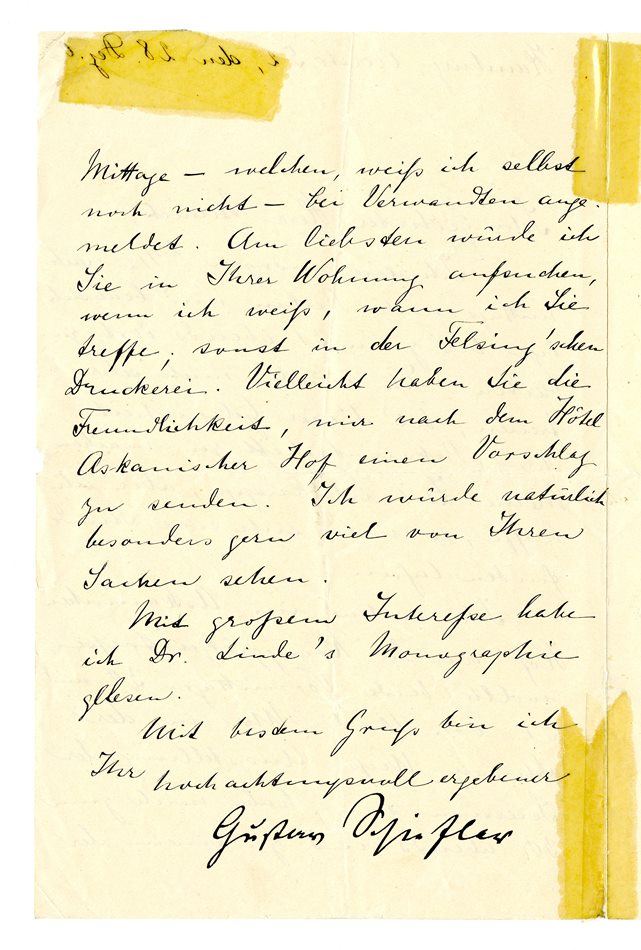 Mittage — welchen, weiß ich selbst
noch nicht — bei Verwandten ange-
meldet. Am liebsten würde ich
Sie in Ihrer Wohnung aufsuchen,
wenn ich weiß, wann ich Sie
treffe, sonst in der Felsing'schen
Druckerei. Vielleicht haben Sie die
Freundlichkeit, mir nach dem Hôtel
Askanischer Hof einen Vorschlag
zu senden. Ich würde natürlich
besonders gern viel von Ihren
Sachen sehen.
Mit großem Intereße habe
ich Dr. Linde's Monographie
gelesen.
Mit bestem Gruß bin ich
Ihr hochachtungsvoll ergebener
Gustav Schiefler